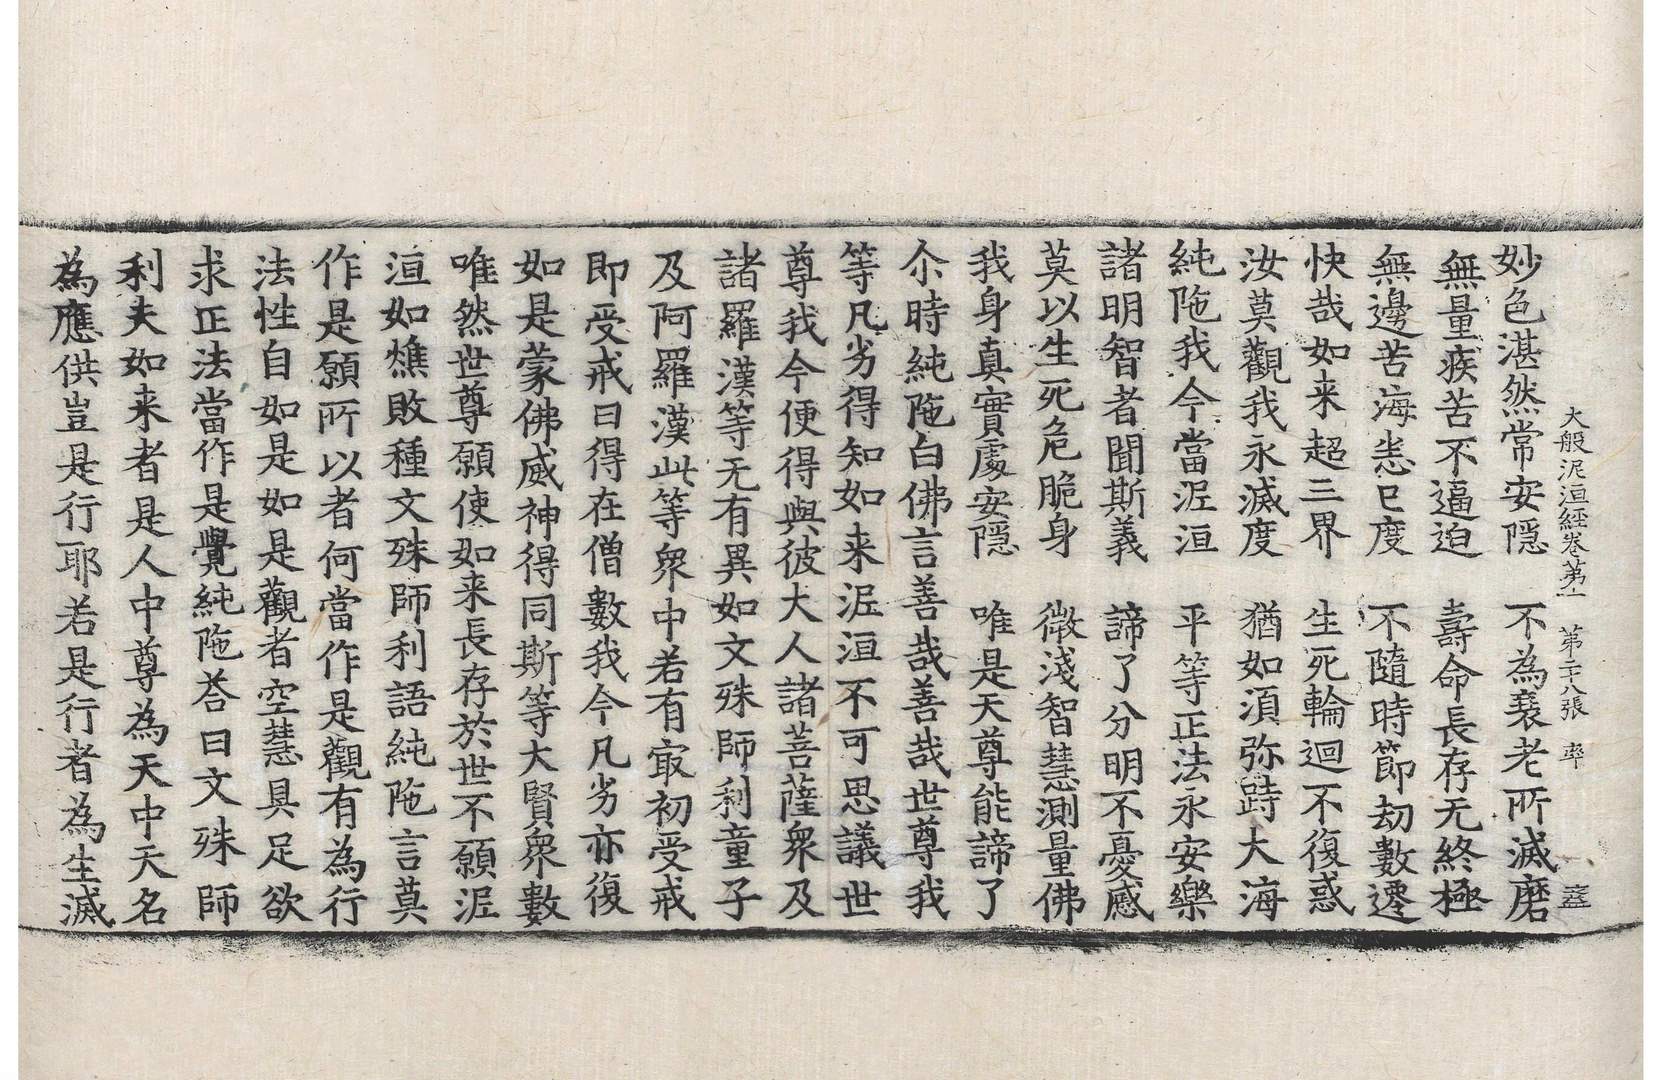 大般泥洹經卷第一　第二十八張　率　蓋
妙色湛然常安隱　不為衰老所滅磨
無量疾苦不逼迫　壽命長存无終極
無邊苦海悉已度　不隨時節劫數遷
快哉如来超三界　生死輪迴不復惑
汝莫觀我永滅度　猶如湏弥跱大海
純陁我今當泥洹　平等正法永安樂
諸明智者聞斯義　諦了分明不憂慼
莫以生死危脆身　微淺智慧測量佛
我身真實處安隱　唯是天尊能諦了
尒時純陁白佛言善哉善哉世尊我
等凡劣得知如来泥洹不可思議世
尊我今便得與彼大人諸菩薩衆及
諸羅漢等无有異如文殊師利童子
及阿羅漢此等衆中若有㝡初受戒
即受戒曰得在僧數我今凡劣亦復
如是蒙佛威神得同斯等大賢衆數
唯然世尊願使如来長存於世不願泥
洹如燋敗種文殊師利語純陁言莫
作是願所以者何當作是觀有為行
法性自如是如是觀者空慧具足欲
求正法當作是覺純陁荅曰文殊師
利夫如来者是人中尊為天中天名
為應供豈是行耶若是行者為生滅